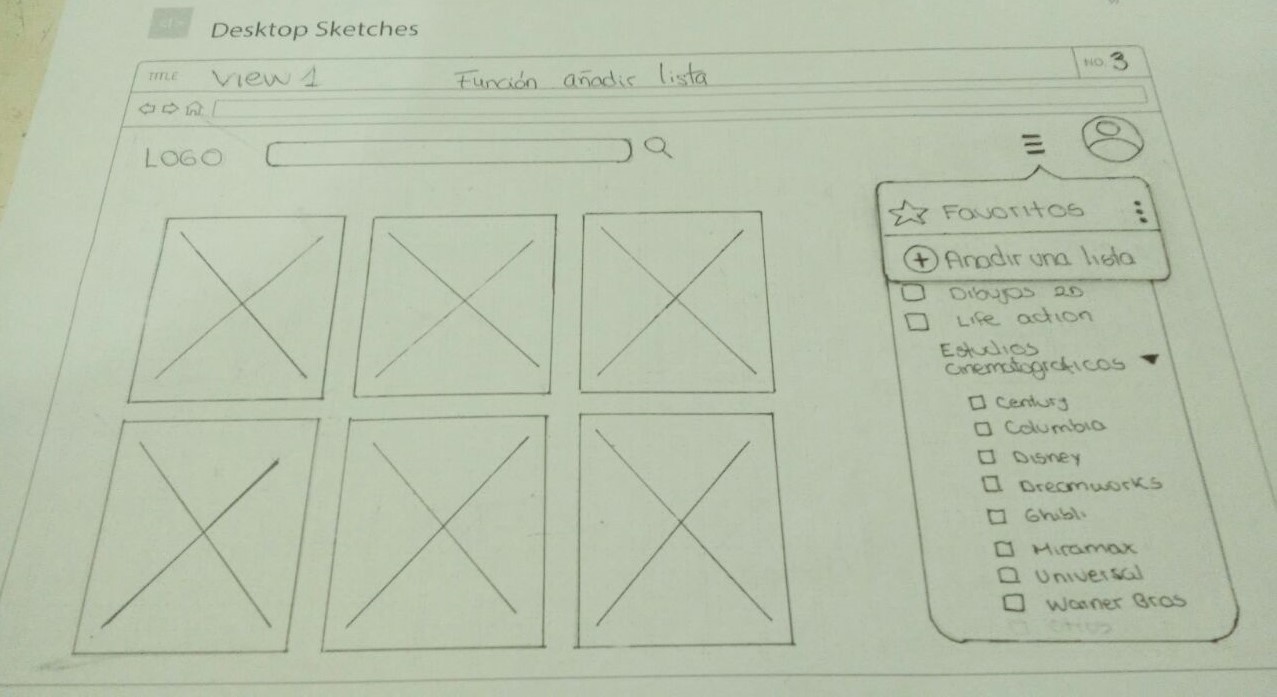 Desktop Sketches
TITLE View 1 Función añadir lista NO. 3
LOGO
Favoritos
Anadir una lista
Dibujos 2D
Life action
Estudios
cinematograficos
Century
Columbia
Disney
Dreamworks
Ghibli
Miramax
Universal
Warner Bros
Otros